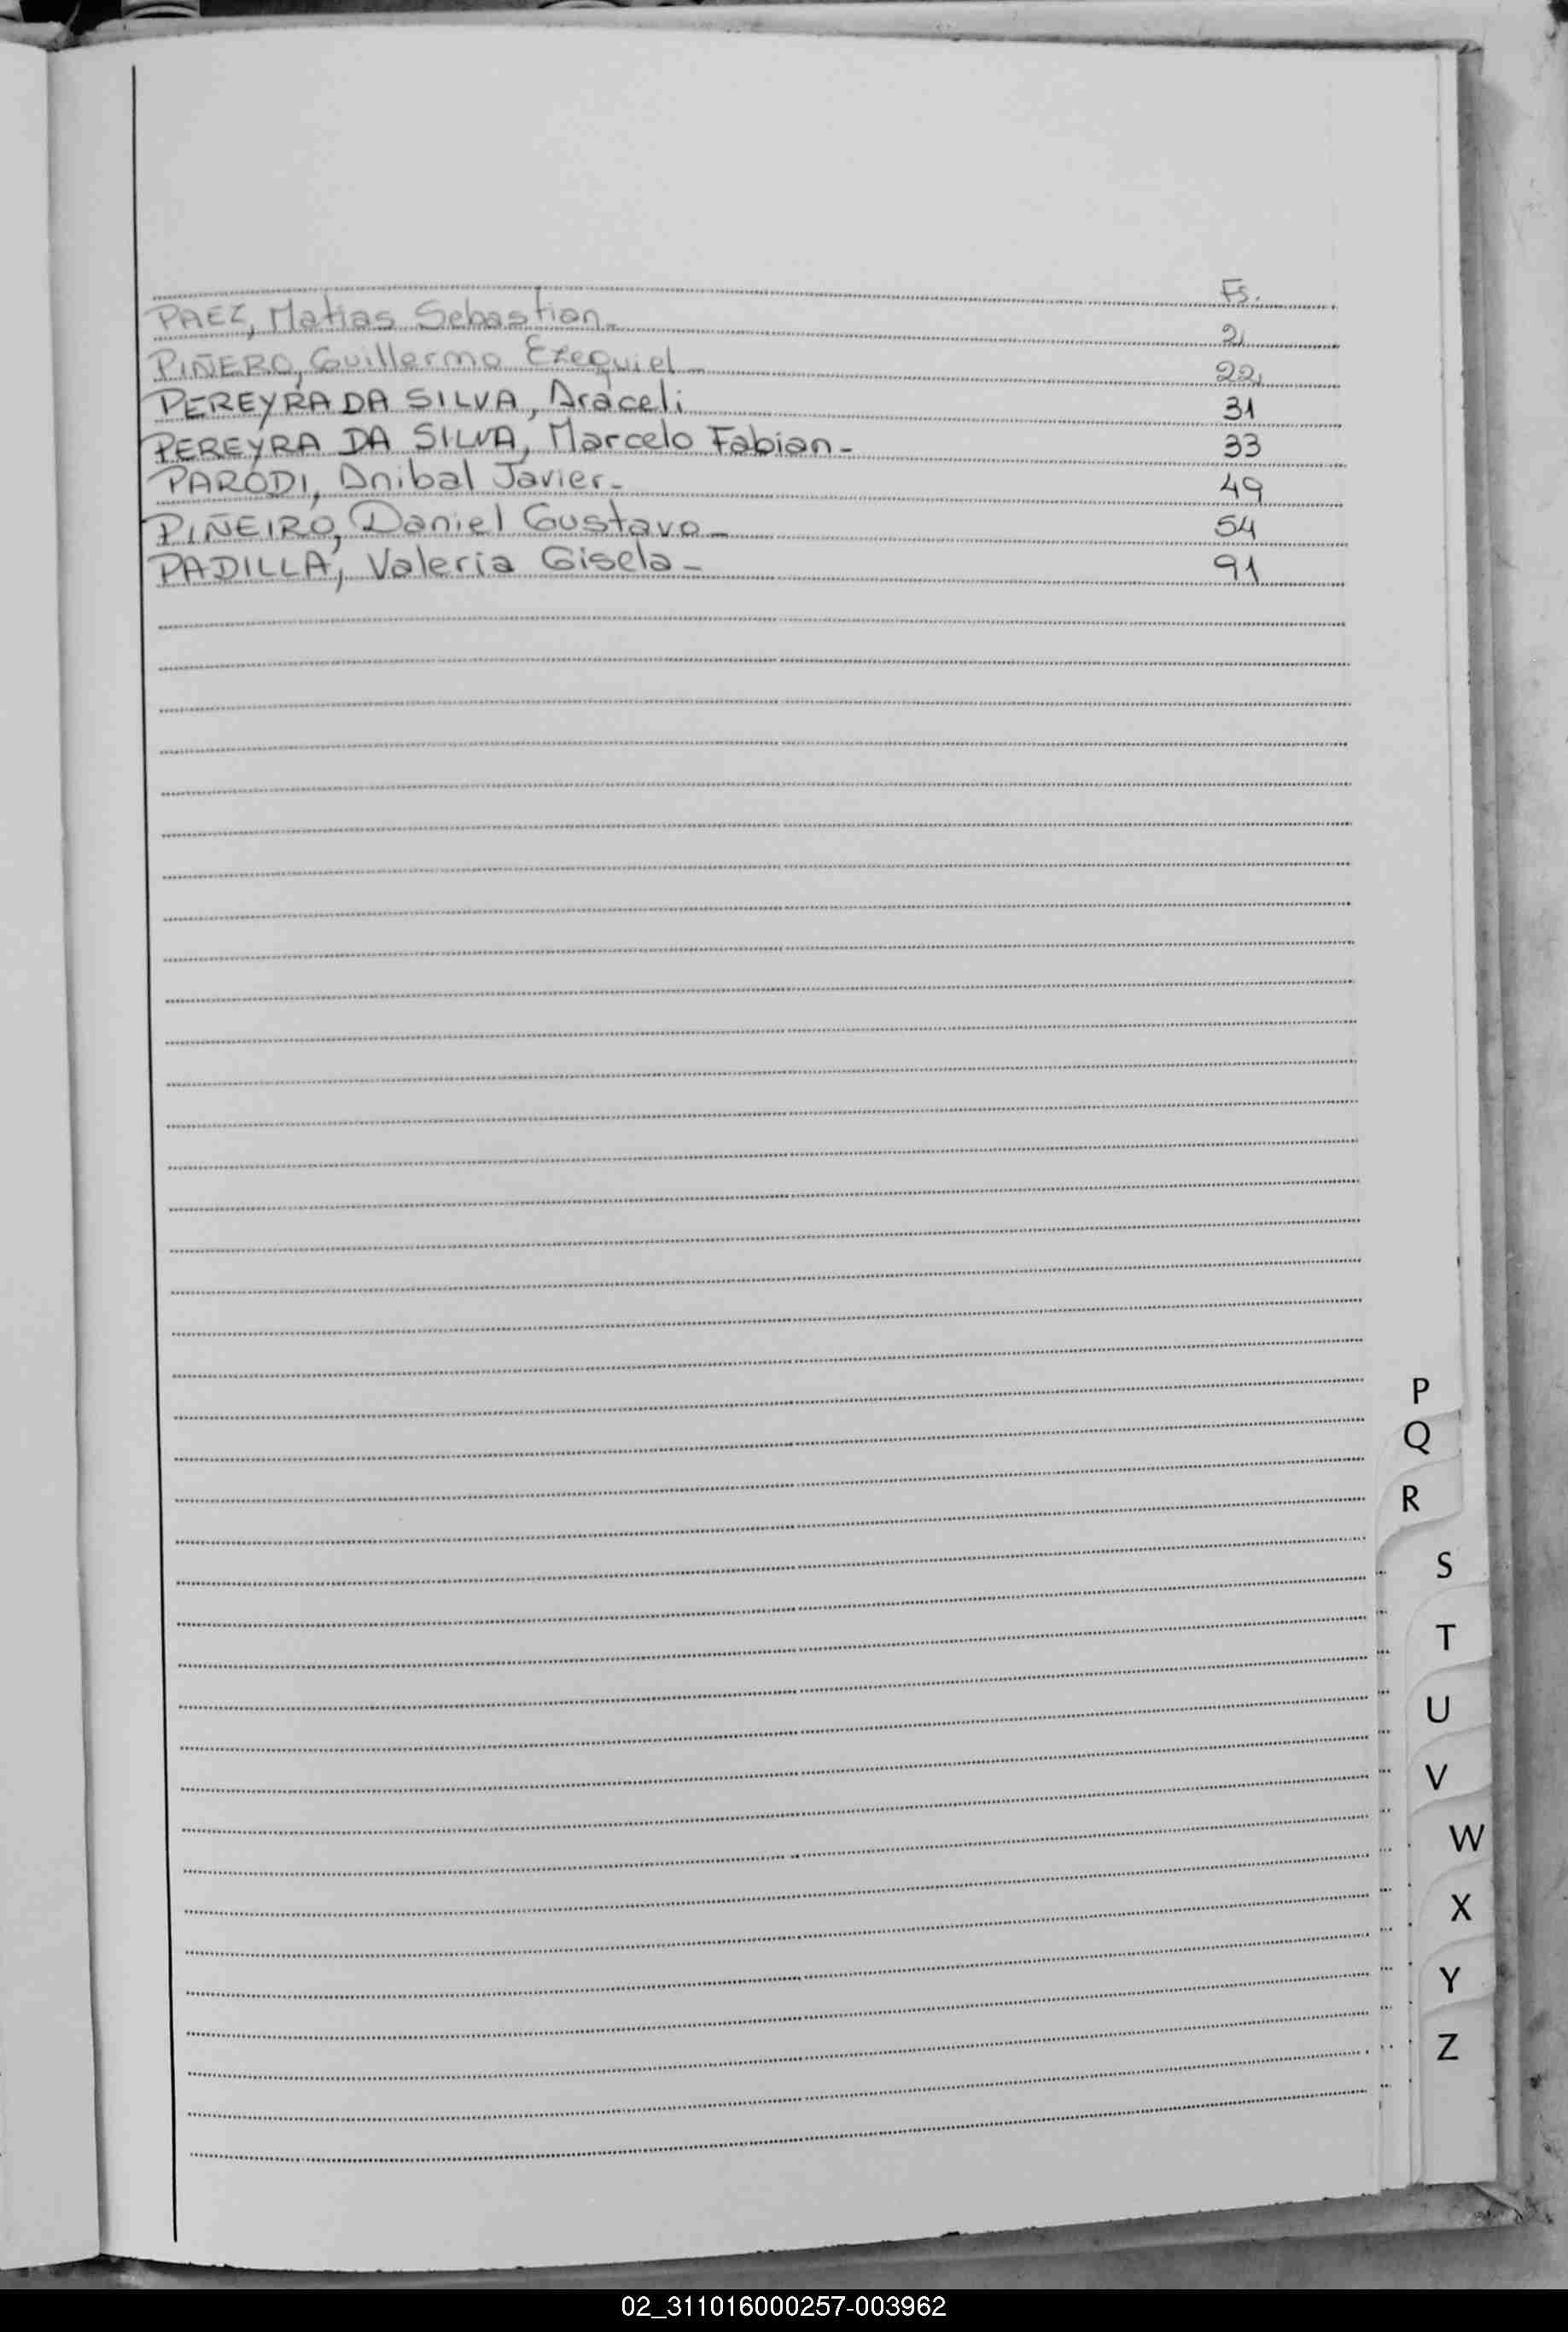 Fs.
PAEZ, Matias Sebastian - 2
PIÑERO, Guillermo Ezequiel - 22
PEREYRA DA SILVA, Araceli 31
PEREYRA DA SILVA, Marcelo Fabian - 33
PARODI, Anibal Javier - 49
PIÑEIRO, Daniel Gustavo - 54
PADILLA, Valeria Gisela - 91
P
Q
R
S
T
U
V
W
X
Y
Z
02_311016000257-003962